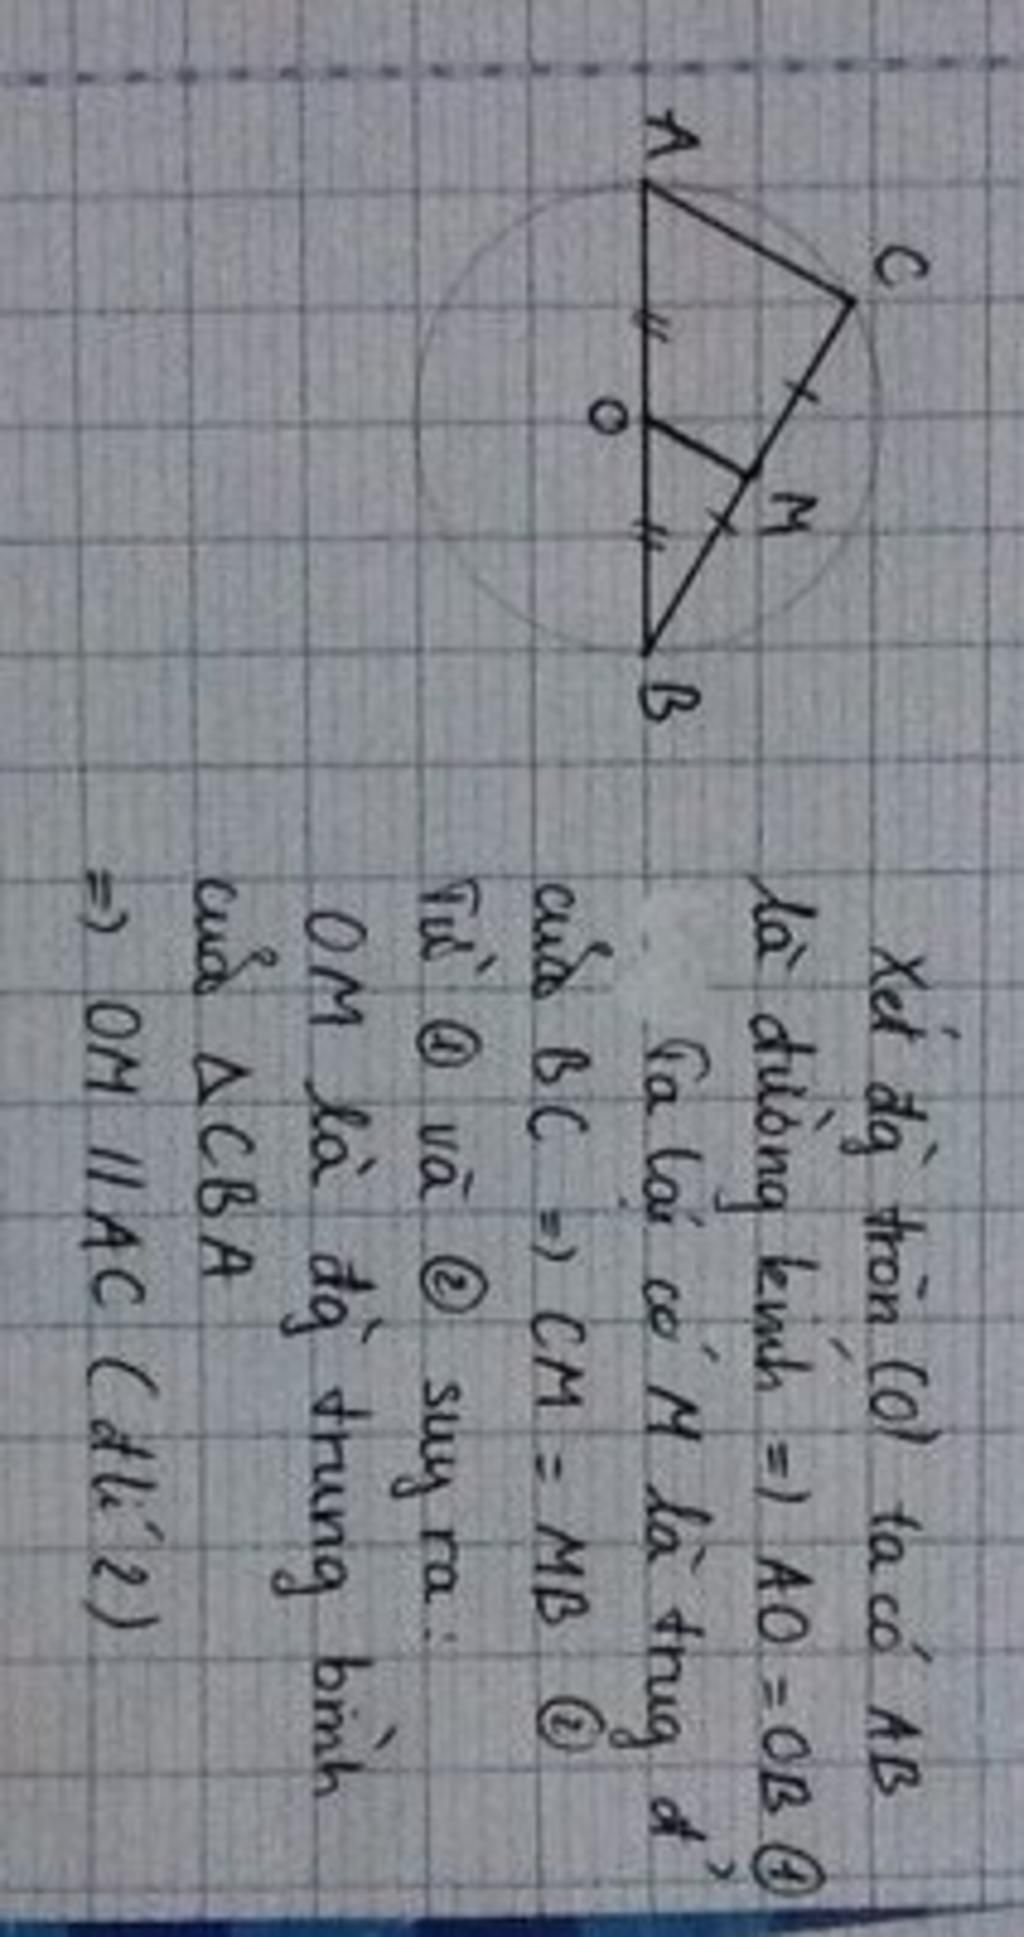 A
C
O
M
B
Xét đg̀ tròn (O) ta có AB
là đường kính => AO = OB ①
Ta lại có M là trug đ̉
của BC => CM = MB ②
Từ ① và ② suy ra:
OM là đg̀ trung bình
của ΔCBA
=> OM // AC (đlí 2)